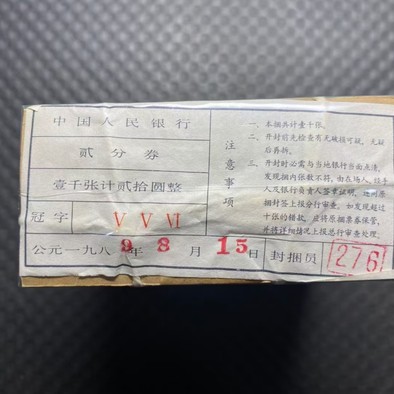 中国人民银行
贰分券
壹千张计贰拾圆整
冠字 V V VI
公元一九八9年8月15日 封捆员 276
注意事项
一、本捆共计壹十张。
二、开封前先检查有无破损可疑，无疑后再拆。
三、开封时必需与当地银行当面点清，
发现捆内张数不符，由在场人、经手
人及银行负责人签章证明，连同原
捆封签上报分行审查，如发现超过
十张的错款，应将原捆票券保管，
并将详细情况上报总行审查处理。